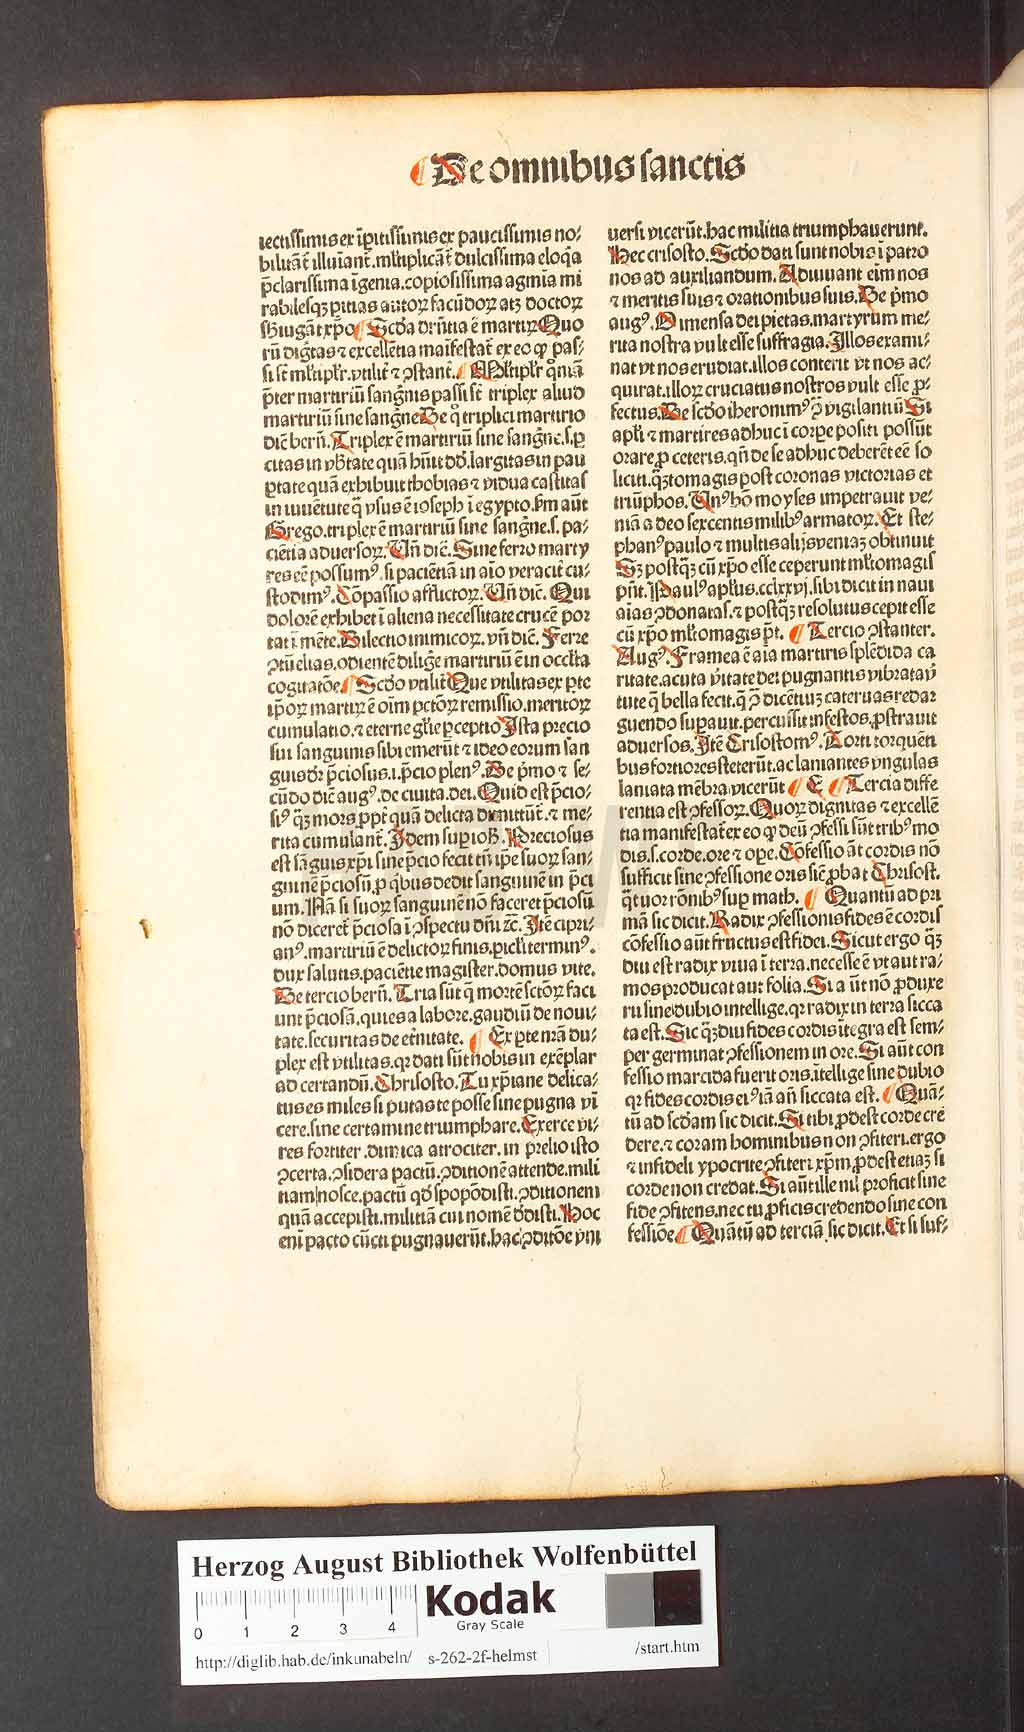 De omnibus sanctis
iectissimis ex īpitissimis ex paucissimis no⸗
bilitāt̄ illuīant̄. ml̄tiplicāt̄ dulcissima eloq̄a
p̄clarissima īgenia. copiosissima agmīa mi
rabilesqꝫ pitias autoꝝ facūdoꝝ atqꝫ doctoꝝ
sb̄iugāt xp̄o Scd̄a dr̄ntia ē martirꝝ Quo
rū dignitas ⁊ excellētia maīfestat̄ ex eo qꝙ pas⸗
si st̄ ml̄tipl̓r. vtilit̓ ⁊ ꝯstant̓. Ml̄tipl̓r qm̄
p̄ter martiriū sang̓nis passi st̄ triplex aliud
martiriū sine sang̓ne De q̊ triplici martirio
dic̄ bern̄. Triplex ē martiriū sine sang̓ne. s. p
citas in vb̓tate quā hūit dd̄. largitas in pau
ꝑtate quā exhibuit thobias ⁊ vidua castitas
in iuuētute q̄ vsus ē ioseph ī egypto. Fm aūt
Grego. triplex ē martiriū sine sang̓ne. s. pa⸗
ciētia aduersoꝝ. Vn̄ dic̄. Sine ferro marty
res eē possumꝰ. si paciētiā in aīo veracit̓ cu⸗
stodimꝰ. Cōpassio afflictoꝝ. Vn̄ dic̄. Qui
dolorē exhibet ī aliena necessitate crucē por
tat ī mēte. Dilectio inimicoꝝ. vn̄ dic̄. Ferre
ꝯtūelias. odientē dilig̓e martiriū ē in occl̓ta
cogitatōe Scd̄o vtilit̓ Que vtilitas ex ꝑte
ip̄oꝝ martirꝝ ē oīm pctōꝝ remissio. meritoꝝ
cumulatio. ⁊ eterne gl̓ie ꝑceptio Ista precio
sui sanguinis sibi emerūt ⁊ ideo eorum san
guis dr̄ p̄ciosus. i. p̄cio plenꝰ. De p̄mo ⁊ se⸗
cūdo dic̄ augꝰ. de ciuita. dei. Quid est p̄cio⸗
siꝰ qꝫ mors ꝓpt̓ quā delicta dimittūt̄. ⁊ me⸗
rita cumulant̄. Idem sup iob. Preciosus
est sāguis xp̄i sine p̄cio fecit tn̄ ip̄e suoꝝ san⸗
guinē p̄ciosū. ꝓ qbꝰ dedit sanguinē in p̄ci
um. Nā si suoꝝ sanguinē nō faceret p̄ciosū
nō diceret̄ p̄ciosa ī ꝯspectu dn̄i ꝛc̄. Itē cipri⸗
anꝰ. martiriū ē delictoꝝ finis. picl̓i terminꝰ.
dux salutis. paciētie magister. domus vite.
De tercio bern̄. Tria sūt q̄ mortē sctōꝝ faci
unt p̄ciosā. quies a labore. gaudiū de noui⸗
tate. securitas de et̓nitate. Ex ꝑte nr̄a du⸗
plex est vtilitas. qꝛ dati sūt nobis in exēplar
ad certandū. Chrisosto. Tu xp̄iane delica⸗
tus es miles si putas te posse sine pugna vī
cere. sine certamine triumphare. Exerce vi⸗
res fortiter. dimica atrociter. in prelio isto
ꝯcerta. ꝯsidera pactū. ꝯditionē attende. mili
tiam nosce. pactū qd̓ spopōdisti. ꝯditionem
quā accepisti. militiā cui nomē dedisti. Hoc
eni pacto cūcti pugnauerūt. hac ꝯditōe vni
uersi vicerūt. hac militia triumphauerunt.
Hec crisosto. Scd̓o dati sunt nobis ī patro
nos ad auxiliandum. Adiuuant eim nos
⁊ meritis suis ⁊ orationibus suis. De p̄mo
augꝰ. Dimensa dei pietas. martyrum me⸗
rita nostra vult esse suffragia. Illos exami⸗
nat vt nos erudiat. illos conterit vt nos ac⸗
quirat. illoꝝ cruciatus nostros vult esse ꝓ⸗
fectus. De scd̓o iheronimꝰ ꝯ̄ vigilantiū Si
apl̓i ⁊ martires adhuc ī corꝑe positi possūt
orare ꝓ ceteris. qn̄ de se adhuc deberēt eē so
liciti. qꝫtomagis post coronas victorias et
triūphos. Vnꝰ hō moyses impetrauit ve⸗
niā a deo sexcentis milibꝰ armatoꝝ. Et ste⸗
phanꝰ paulo ⁊ multis alijs veniaꝫ obtinuit
Sꝫ postqꝫ cū xp̄o esse ceperunt ml̓tomagis
pn̄t. Paulꝰ apl̓us. cclxxvj. sibi dicit in naui
aīas ꝯdonatas. ⁊ postqꝫ resolutus cepit esse
cū xp̄o ml̓tomagis pt̄. Tercio ꝯstanter.
Augꝰ. Framea ē aīa martiris splēdida ca
ritate. acuta v̓itate dei pugnantis vibrata v̓
tute q̄ bella fecit. q̄ ꝯ̄dicētiuꝫ cateruas redar
guendo supauit. percussit infestos. ꝓstrauit
aduersos. Itē Crisostomꝰ. Torti torquēti
bus fortiores steterūt. ac laniantes vngulas
laniata mēbra vicerūt E Tercia diffe
rentia est ꝯfessoꝝ. Quoꝝ dignitas ⁊ excellē
tia manifestat̄ ex eo qꝙ deū ꝯfessi sūt tribꝰ mo
dis. s. corde. ore ⁊ oꝑe. Cōfessio āt cordis nō
sufficit sine ꝯfessione oris sic̄ ꝓbat Chrisost.
q̄tuor rōnibꝰ sup math. Quantū ad pri
mā sic dicit. Radix ꝯfessionis fides ē cordis
cōfessio aūt fructus est fidei. Sicut ergo qꝫ
diu est radix viua ī terra. necesse ē vt aut ra⸗
mos producat aut folia. Si aūt nō ꝓduxe
rit sine dubio intellige. qꝛ radix in terra sicca
ta est. Sic qꝫdiu fides cordis ītegra est sem⸗
per germinat ꝯfessionem in ore. Si aūt con
fessio marcida fuerit oris. ītellige sine dubio
qꝛ fides cordis eiꝰ iā an̄ siccata est. Quā⸗
tū ad scd̓am sic dicit. Si tibi ꝓdest corde cre
dere. ⁊ coram hominibus non ꝯfiteri. ergo
⁊ infideli ypocrite ꝯfiteri xp̄m ꝓdest etiaꝫ si
corde non credat. Si aūt ille nil proficit sine
fide ꝯfitens. nec tu ꝓficis credendo sine con
fessiōe Quātū ad terciā sic dicit. Et si suf⸗
HAB WF
Herzog August Bibliothek Wolfenbüttel
0 1 2 3 4
Kodak
Gray Scale
http://diglib.hab.de/inkunabeln/ s-262-2f-helmst /start.htm